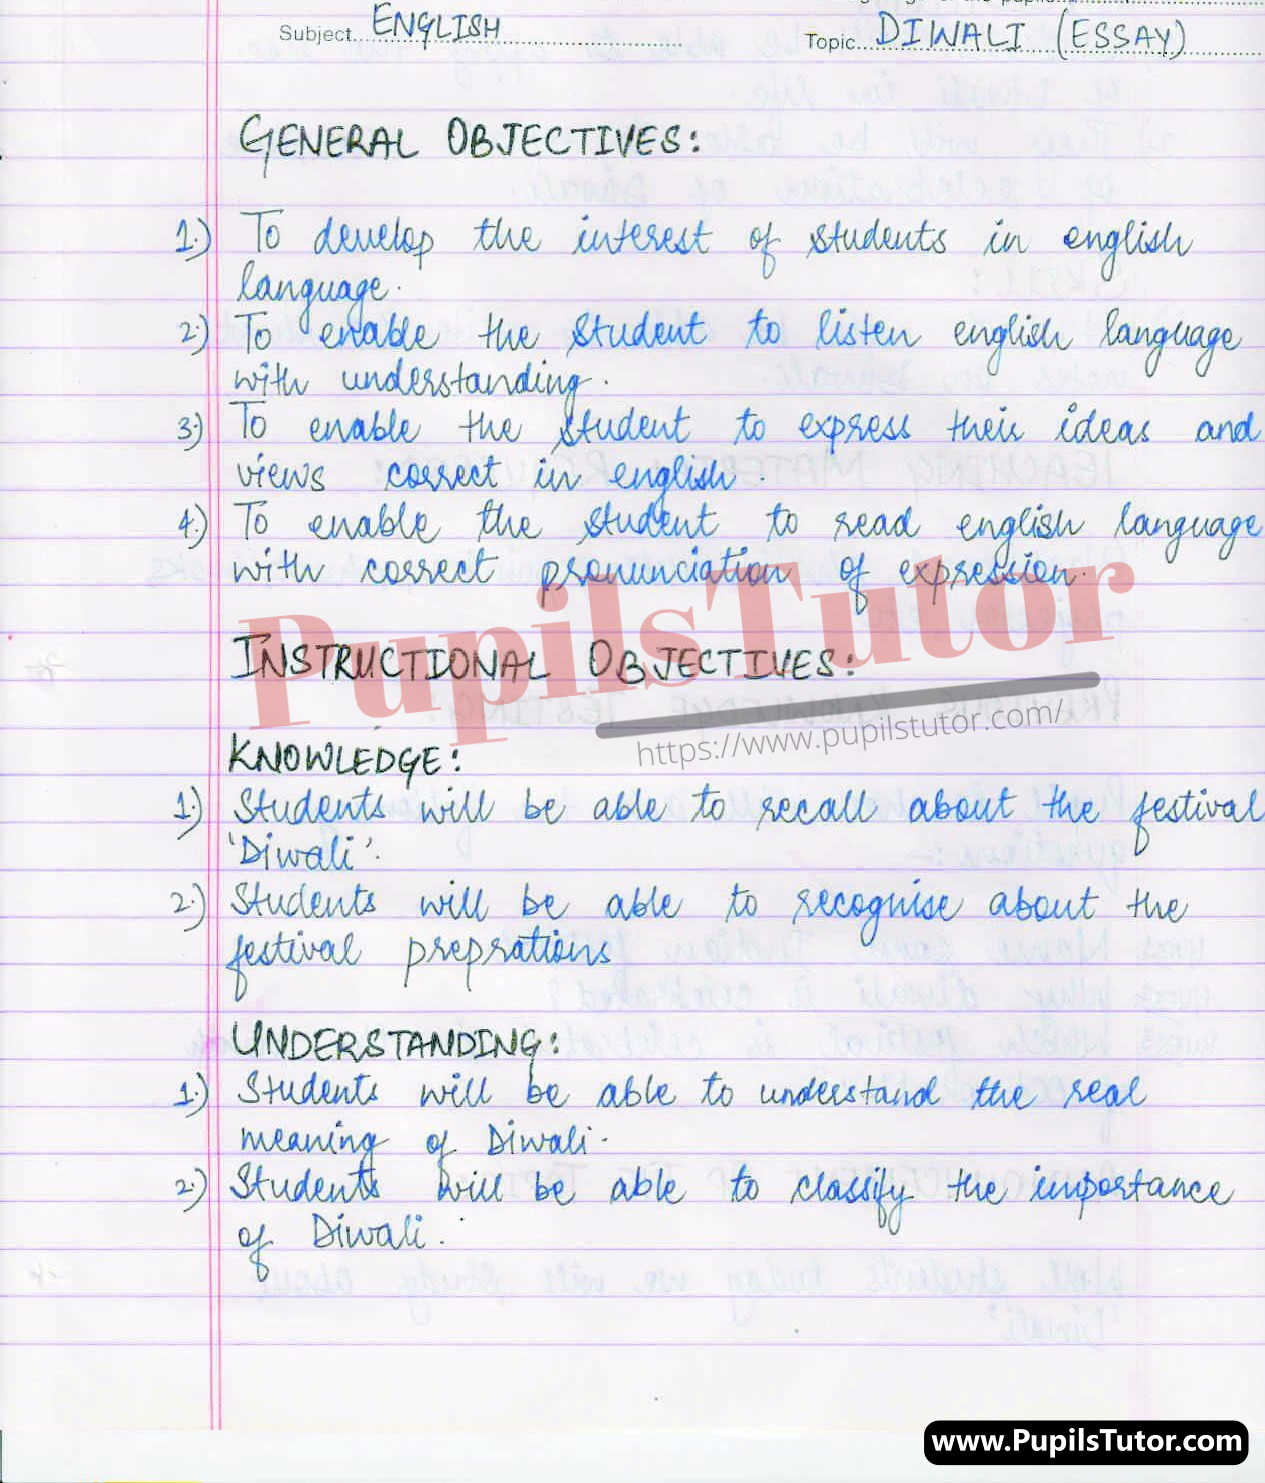 Subject... ENGLISH
Topic... DIWALI (ESSAY)
GENERAL OBJECTIVES:
1.) To develop the interest of students in english
language.
2.) To enable the student to listen english language
with understanding.
3.) To enable the student to express their ideas and
views correct in english.
4.) To enable the student to read english language
with correct pronunciation of expression.
PupilsTutor
INSTRUCTIONAL OBJECTIVES:
https://www.pupilstutor.com/
KNOWLEDGE:
1.) Students will be able to recall about the festival
'Diwali'.
2.) Students will be able to recognise about the
festival preprations
UNDERSTANDING:
1.) Students will be able to understand the real
meaning of Diwali.
2.) Students will be able to classify the importance
of Diwali.
www.PupilsTutor.com